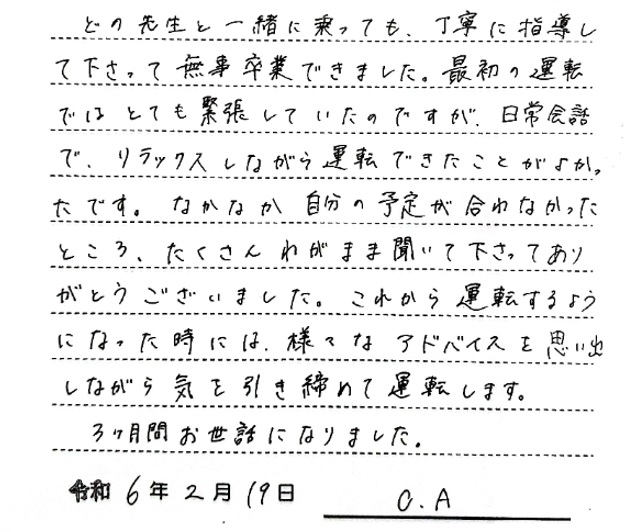 どの先生と一緒に乗っても、丁寧に指導し
て下さって無事卒業できました。最初の運転
ではとても緊張していたのですが、日常会話
で、リラックスしながら運転できたことがよかっ
たです。なかなか自分の予定が合わなかった
ところ、たくさんわがまま聞いて下さってあり
がとうございました。これから運転するよう
になった時には、様々なアドバイスを思い出
しながら気を引き締めて運転します。
3ヶ月間お世話になりました。
令和6年2月19日 C.A